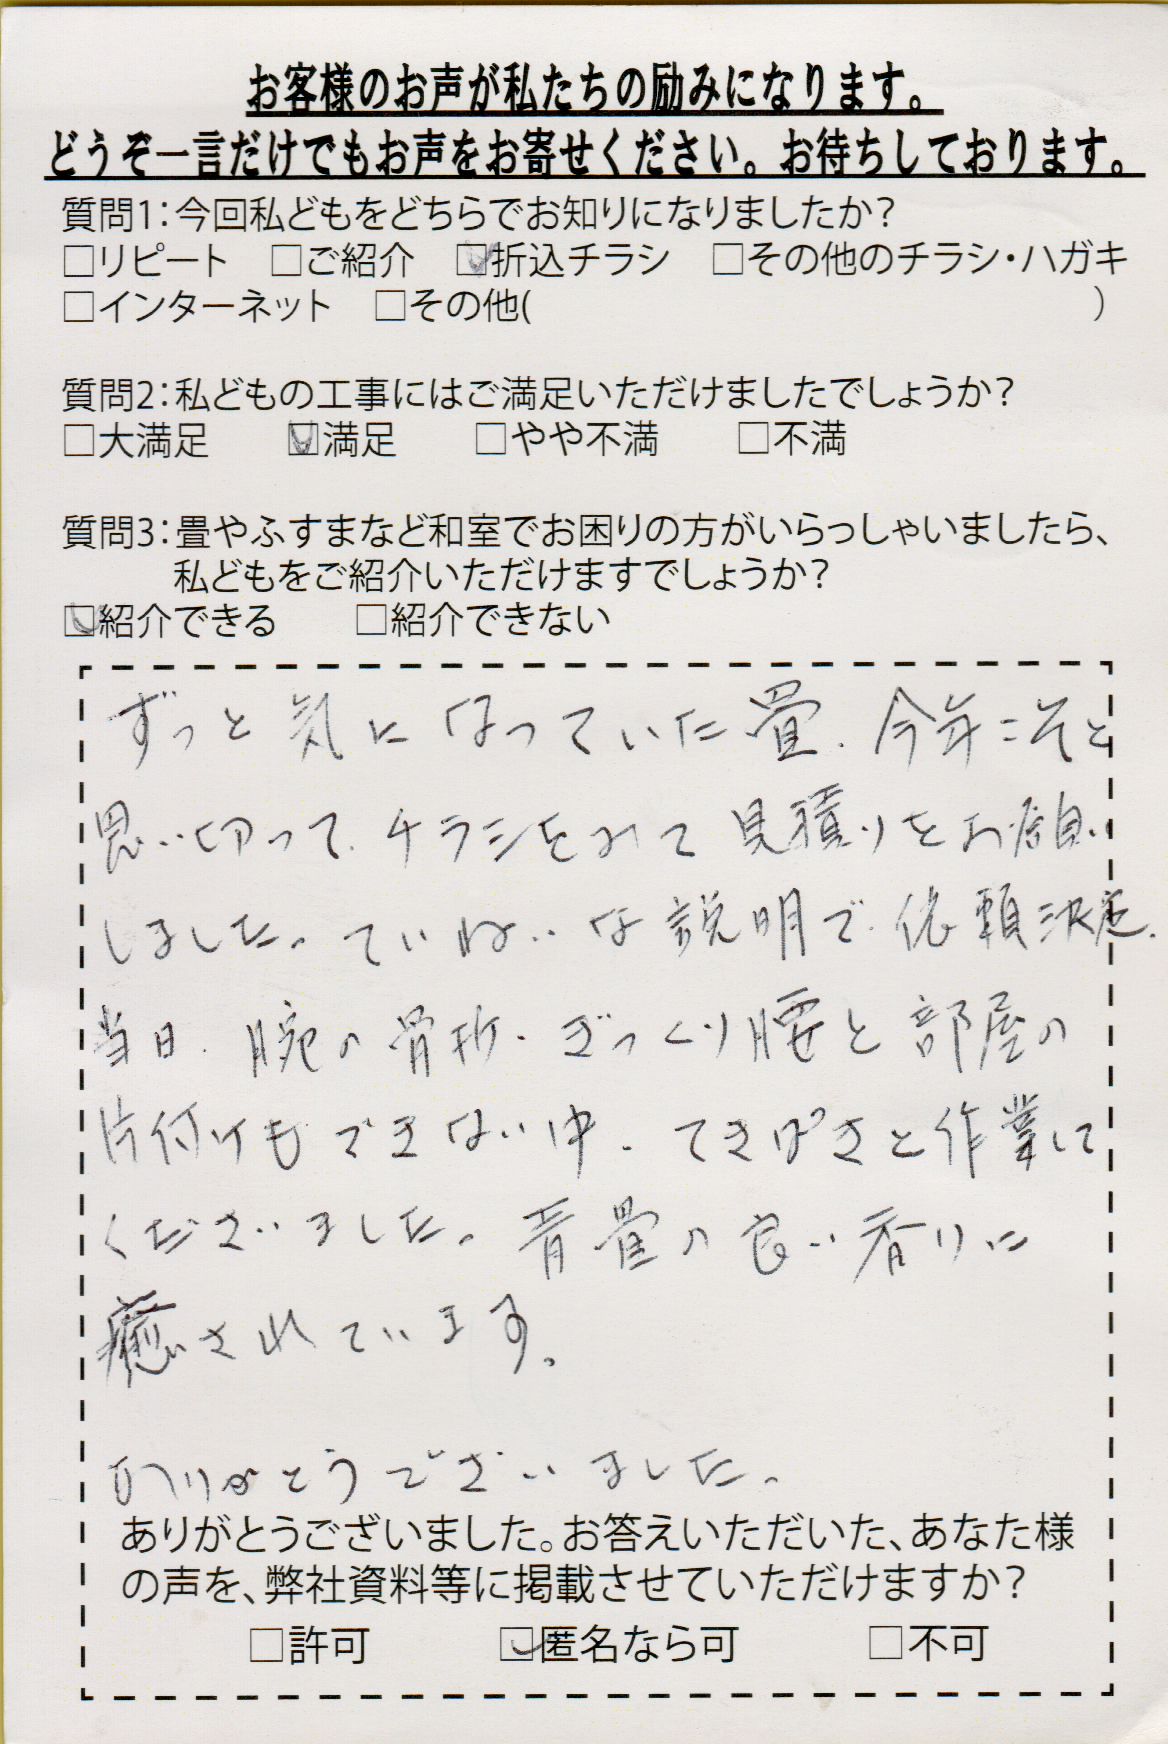 お客様のお声が私たちの励みになります。
どうぞ一言だけでもお声をお寄せください。お待ちしております。
質問1：今回私どもをどちらでお知りになりましたか？
□リピート □ご紹介 ☑折込チラシ □その他のチラシ・ハガキ
□インターネット □その他( )
質問2：私どもの工事にはご満足いただけましたでしょうか？
□大満足 ☑満足 □やや不満 □不満
質問3：畳やふすまなど和室でお困りの方がいらっしゃいましたら、
私どもをご紹介いただけますでしょうか？
☑紹介できる □紹介できない
ずっと気になっていた畳、今年こそと
思い切って、チラシをみて見積りをお願い
しました。ていねいな説明で、依頼決定。
当日、腕の骨折、ぎっくり腰と部屋の
片付けもできない中、てきぱきと作業して
くださいました。青畳の良い香りに
癒されています。
ありがとうございました。
ありがとうございました。お答えいただいた、あなた様
の声を、弊社資料等に掲載させていただけますか？
□許可 ☑匿名なら可 □不可